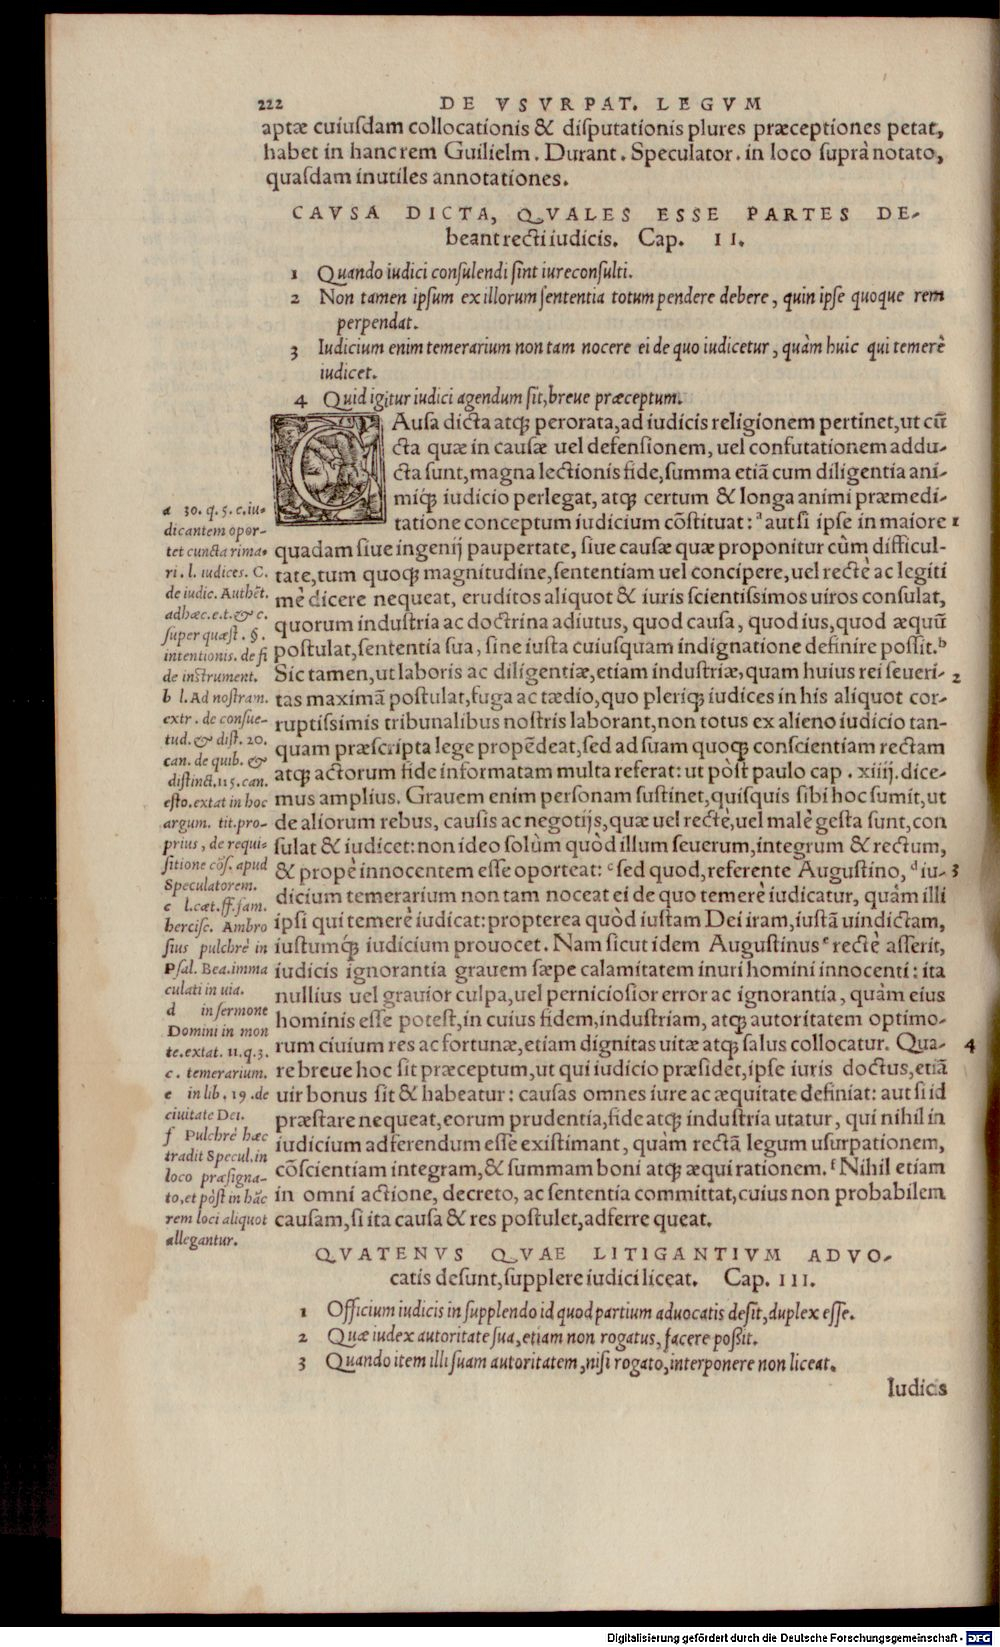 222 DE VSVRPAT. LEGVM
aptæ cuiuſdam collocationis & diſputationis plures præceptiones petat,
habet in hanc rem Guilielm. Durant. Speculator. in loco ſuprà notato,
quaſdam inutiles annotationes.
CAVSA DICTA, QVALES ESSE PARTES DE-
beant recti iudicis. Cap. II.
1 Quando iudici conſulendi ſint iureconſulti.
2 Non tamen ipſum ex illorum ſententia totum pendere debere, quin ipſe quoque rem
perpendat.
3 Iudicium enim temerarium non tam nocere ei de quo iudicetur, quàm huic qui temerè
iudicet.
4 Quid igitur iudici agendum ſit, breue præceptum.
CAuſa dicta atq; perorata, ad iudicis religionem pertinet, ut cū
cta quæ in cauſæ uel defenſionem, uel confutationem addu-
cta ſunt, magna lectionis fide, ſumma etiā cum diligentia ani-
miq́; iudicio perlegat, atq; certum & longa animi præmedi-
tatione conceptum iudicium cōſtituat: ᵃ aut ſi ipſe in maiore 1
quadam ſiue ingenij paupertate, ſiue cauſæ quæ proponitur cùm difficul-
tate, tum quoq; magnitudine, ſententiam uel concipere, uel rectè ac legiti
mè dicere nequeat, eruditos aliquot & iuris ſcientiſſimos uiros conſulat,
quorum induſtria ac doctrina adiutus, quod cauſa, quod ius, quod æquū
poſtulat, ſententia ſua, ſine iuſta cuiuſquam indignatione definire poſſit. ᵇ
Sic tamen, ut laboris ac diligentiæ, etiam induſtriæ, quam huius rei ſeueri- 2
tas maximā poſtulat, fuga ac tædio, quo pleriq; iudices in his aliquot cor-
ruptiſſimis tribunalibus noſtris laborant, non totus ex alieno iudicio tan-
quam præſcripta lege propēdeat, ſed ad ſuam quoq; conſcientiam rectam
atq; actorum fide informatam multa referat: ut pòſt paulo cap. xiiij. dice-
mus amplius. Grauem enim perſonam ſuſtinet, quiſquis ſibi hoc ſumit, ut
de aliorum rebus, cauſis ac negotijs, quæ uel rectè, uel malè geſta ſunt, con
ſulat & iudicet: non ideo ſolùm quòd illum ſeuerum, integrum & rectum,
& propè innocentem eſſe oporteat: ᶜ ſed quod, referente Auguſtino, ᵈ iu- 3
dicium temerarium non tam noceat ei de quo temerè iudicatur, quàm illi
ipſi qui temerè iudicat: propterea quòd iuſtam Dei iram, iuſtā uindictam,
iuſtumq́; iudicium prouocet. Nam ſicut idem Auguſtinus ᵉ rectè aſſerit,
iudicis ignorantia grauem ſæpe calamitatem inuri homini innocenti: ita
nullius uel grauior culpa, uel pernicioſior error ac ignorantia, quàm eius
hominis eſſe poteſt, in cuius fidem, induſtriam, atq; autoritatem optimo-
rum ciuium res ac fortunæ, etiam dignitas uitæ atq; ſalus collocatur. Qua- 4
re breue hoc ſit præceptum, ut qui iudicio præſidet, ipſe iuris doctus, etiā
uir bonus ſit & habeatur: cauſas omnes iure ac æquitate definiat: aut ſi id
præſtare nequeat, eorum prudentia, fide atq; induſtria utatur, qui nihil in
iudicium adferendum eſſe exiſtimant, quàm rectā legum uſurpationem,
cōſcientiam integram, & ſummam boni atq; æqui rationem. ᶠ Nihil etiam
in omni actione, decreto, ac ſententia committat, cuius non probabilem
cauſam, ſi ita cauſa & res poſtulet, adferre queat.
a 30. q. 5. c. iu-
dicantem opor-
tet cuncta rima-
ri. l. iudices. C.
de iudic. Authēt.
adhæc. e. t. & c.
ſuper quæſt. §.
intentionis. de fi
de inſtrument.
b l. Ad noſtram.
extr. de conſue-
tud. & diſt. 20.
can. de quib. &
diſtinct. 115. can.
eſto. extat in hoc
argum. tit. pro-
prius, de requi-
ſitione cōſ. apud
Speculatorem.
c l. cæt. ff. fam.
herciſc. Ambro
ſius pulchrè in
Pſal. Bea. imma
culati in uia.
d in ſermone
Domini in mon
te. extat. 11. q. 3.
c. temerarium.
e in lib. 19. de
ciuitate Dei.
f Pulchrè hæc
tradit Specul. in
loco præſigna-
to, et pòſt in hāc
rem loci aliquot
allegantur.
QVATENVS QVAE LITIGANTIVM ADVO-
catis deſunt, ſupplere iudici liceat. Cap. III.
1 Officium iudicis in ſupplendo id quod partium aduocatis deſit, duplex eſſe.
2 Quæ iudex autoritate ſua, etiam non rogatus, facere poßit.
3 Quando item illi ſuam autoritatem, niſi rogato, interponere non liceat.
Iudicis
Digitalisierung gefördert durch die Deutsche Forschungsgemeinschaft - DFG